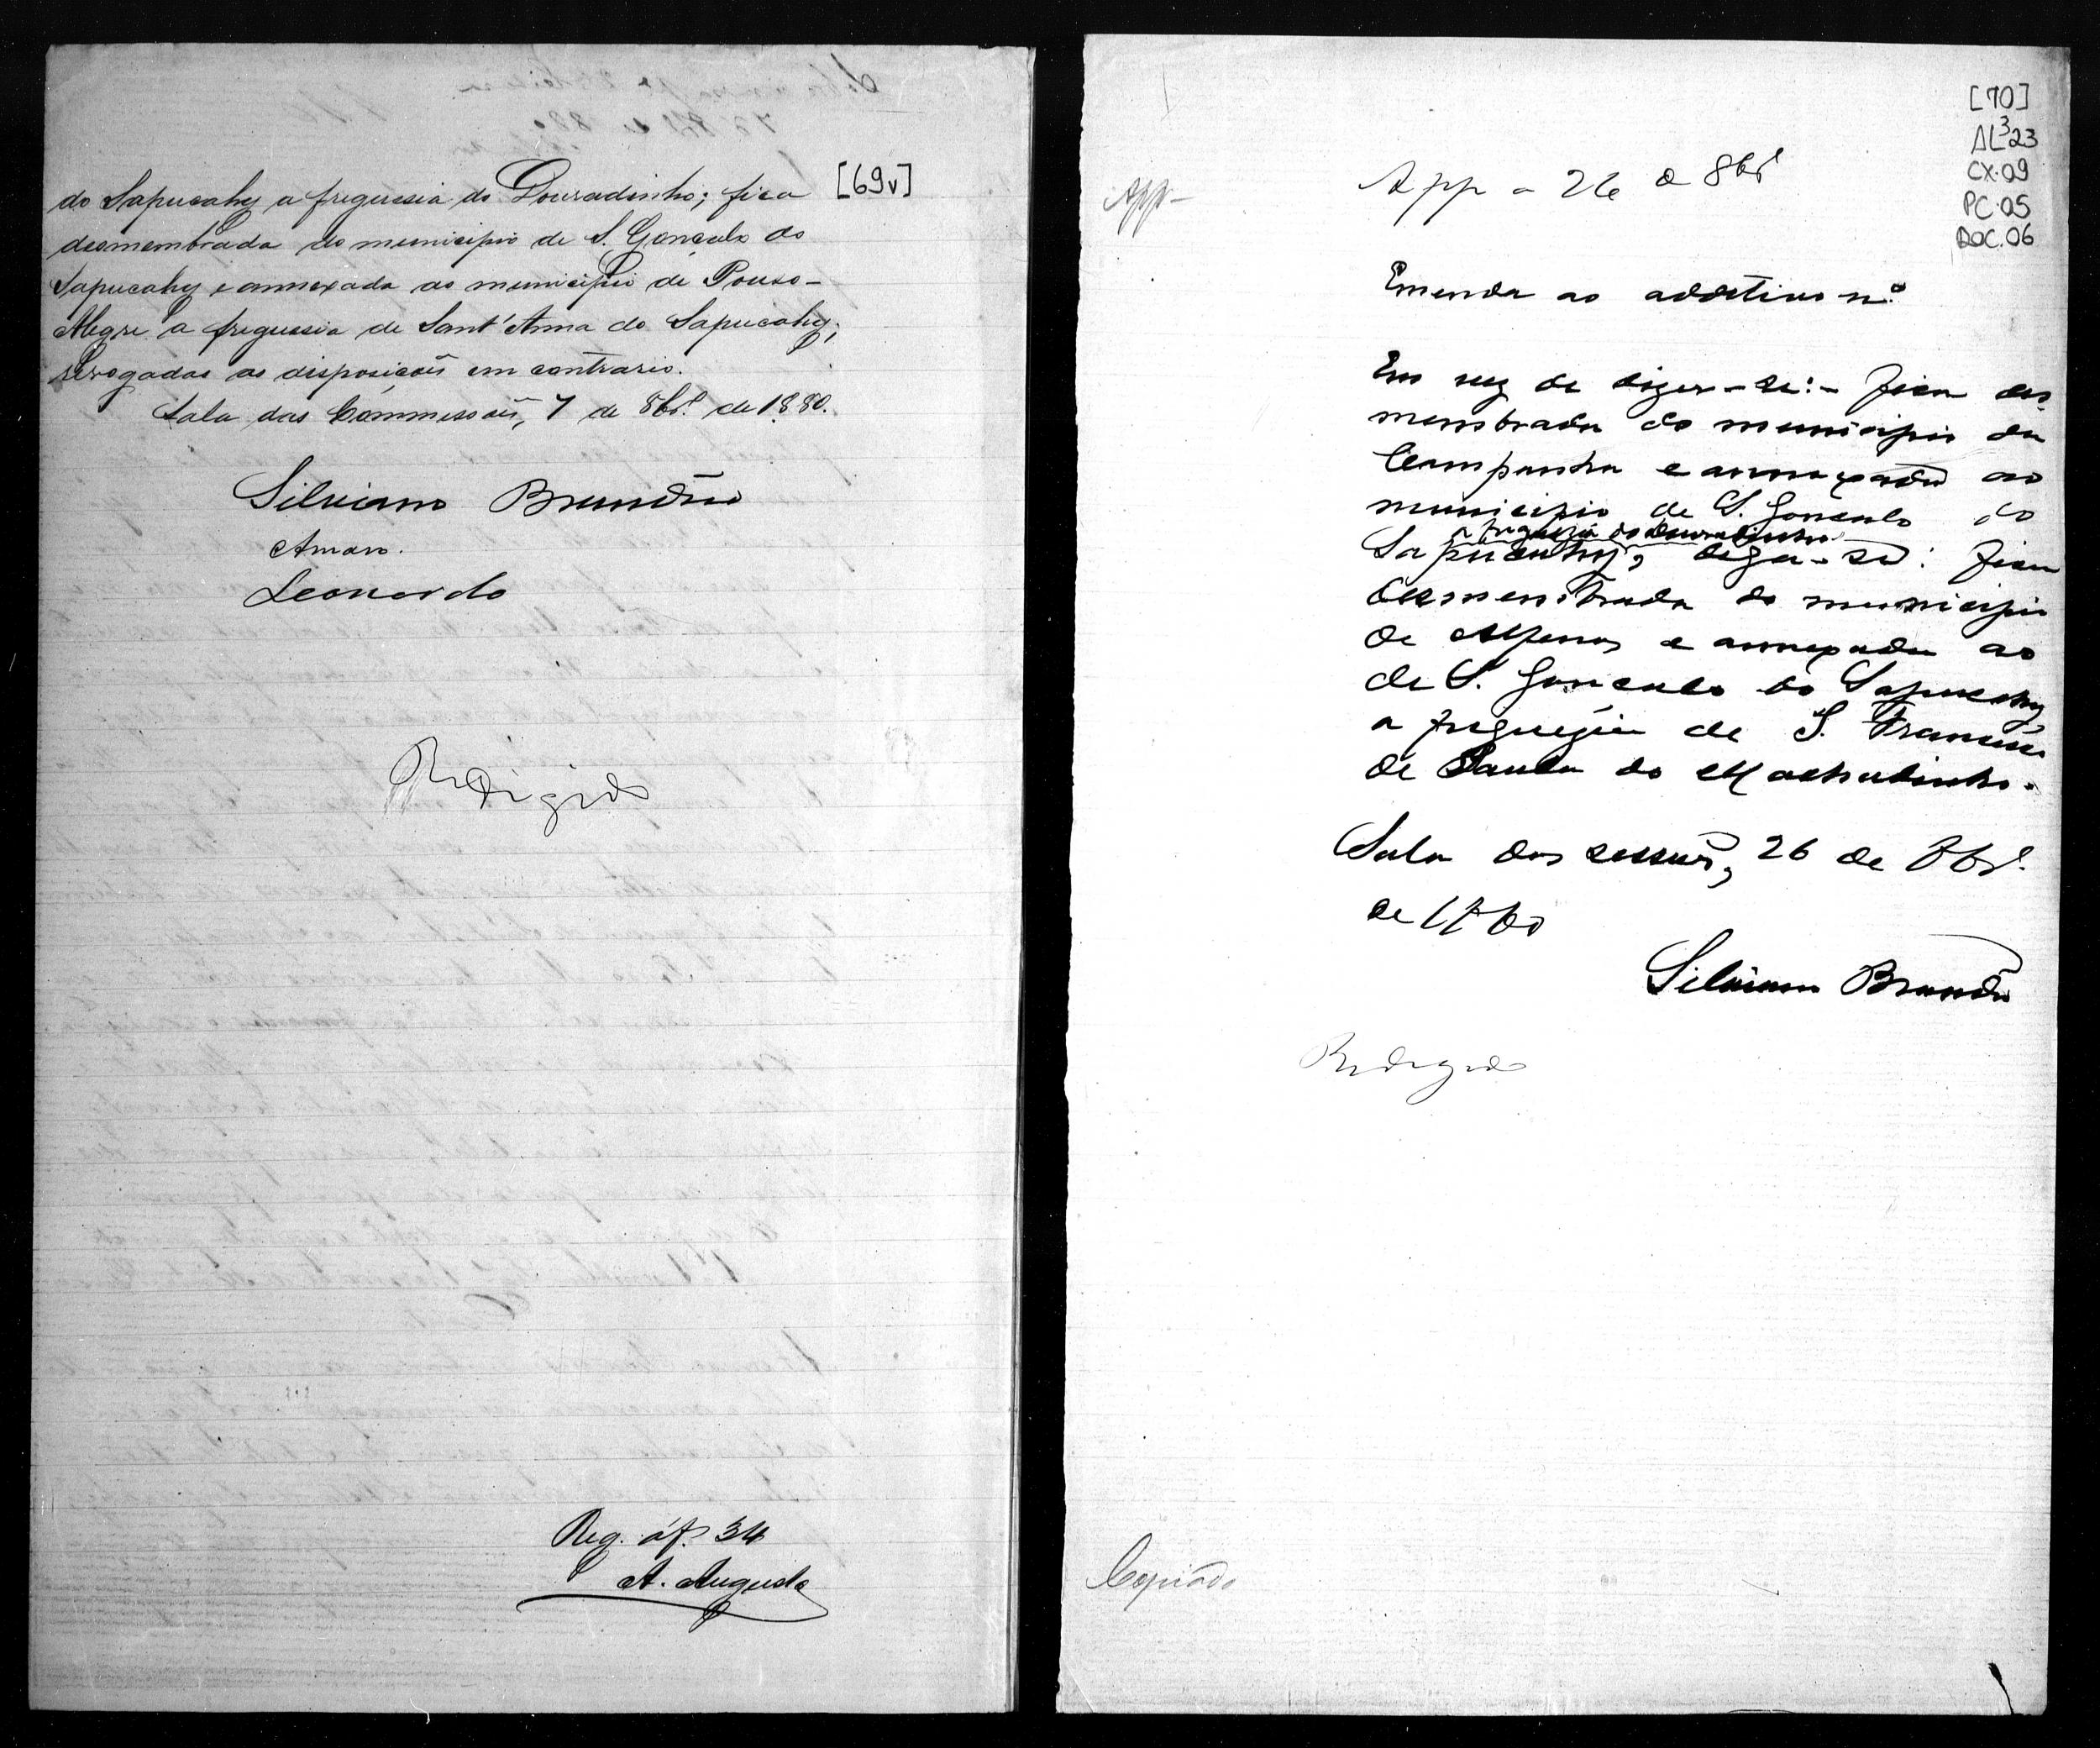 [69v]
do Sapucahy a freguesia do Douradinho; fica
desmembrada do municipio de S. Gonçalo do
Sapucahy e annexada ao municipio de Pouso-
Alegre a freguesia de Sant'Anna do Sapucahy;
revogadas as disposições em contrario.
Sala das Commissões, 7 de 8br.º de 1880.
Silviano Brandão
Amaro.
Leonardo
Redigido
Reg. á f. 34
A. Augusto
[70]
AL³23
CX.09
PC.05
DOC.06
App -
App - 26 de 8brº
Emenda ao additivo n.º
Em vez de dizer-se:- fica des-
membrada do municipio da
Campanha e annexada ao
municipio de S. Gonçalo do
a freguezia do Douradinho
Sapucahy, diga-se: fica
desmembrada do municipio
de Alfenas e annexada ao
de S. Gonçalo do Sapucahy
a freguezia de S. Francisco
de Paula do Machadinho.
Sala das sessões, 26 de 8br.º
de 1880
Silviano Brandão
Redigido
Copiado